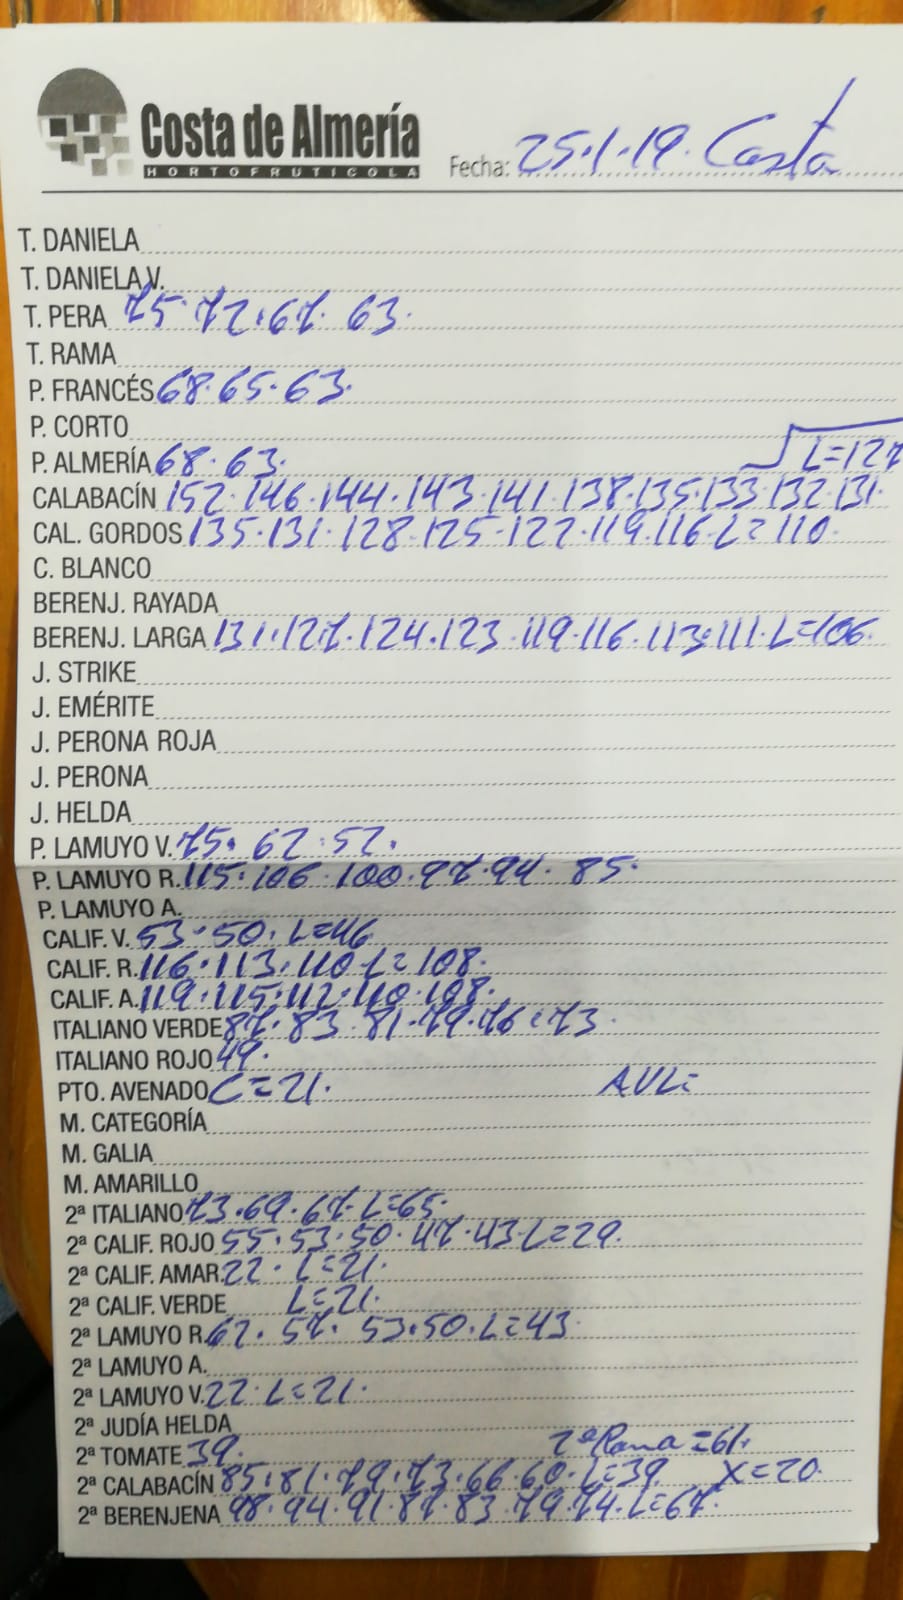 Costa de Almería
HORTOFRUTÍCOLA
Fecha: 25.1.19. Costa
T. DANIELA
T. DANIELA V.
T. PERA 75.72.67. 63.
T. RAMA
P. FRANCÉS 68.65.63.
P. CORTO
P. ALMERÍA 68.63. L=127
CALABACÍN 152.146.144.143.141.138.135.133.132.131.
CAL. GORDOS 135.131.128.125.122.119.116.L=110.
C. BLANCO
BERENJ. RAYADA
BERENJ. LARGA 131.127.124.123.119.116.113.111.L=106.
J. STRIKE
J. EMÉRITE
J. PERONA ROJA
J. PERONA
J. HELDA
P. LAMUYO V. 75. 62.52.
P. LAMUYO R. 115.106.100.97.94. 85.
P. LAMUYO A.
CALIF. V. 53.50. L=46
CALIF. R. 116.113.110.L=108.
CALIF. A. 119.115.112.110.108.
ITALIANO VERDE 87.83.81.79.76.73.
ITALIANO ROJO 49.
PTO. AVENADO C=21. AVL=
M. CATEGORÍA
M. GALIA
M. AMARILLO
2ª ITALIANO 73.69.67.L=65.
2ª CALIF. ROJO 55.53.50.47.43.L=29.
2ª CALIF. AMAR. 22. L=21.
2ª CALIF. VERDE L=21.
2ª LAMUYO R. 62. 57. 53.50.L=43.
2ª LAMUYO A.
2ª LAMUYO V. 22.L=21.
2ª JUDÍA HELDA
2ª TOMATE 39. 2ª Rama=61.
2ª CALABACÍN 85.81.79.73.66.60.L=39 X=20.
2ª BERENJENA 98.94.91.87.83.79.74.L=67.